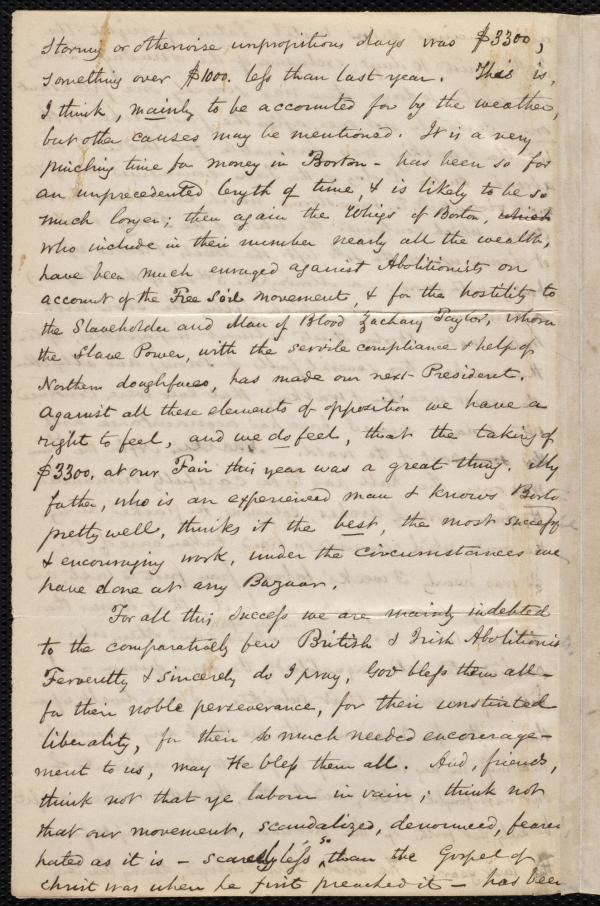 stormy or otherwise unpropitious days was $3300,
something over $1000. less than last year. This is,
I think, mainly to be accounted for by the weather,
but other causes may be mentioned. It is a very
pinching time for money in Boston - has been so for
an unprecedented length of time, & is likely to be so
much longer; then again the Whigs of Boston, which
who include in their number nearly all the wealth,
have been much enraged against Abolitionists on
account of the Free Soil movements, & for the hostility to
the Slaveholder and Man of Blood Zachary Taylor, whom
the Slave Power, with the servile compliance & help of
Northern doughfaces, has made our next President.
Against all these elements of opposition we have a
right to feel, and we do feel, that the taking of
$3300. at our Fair this year was a great thing. My
father, who is an experienced man & knows Bosto
pretty well, thinks it the best, the most successf
& encouraging work, under the circumstances we
have done at any Bazaar.
For all this success we are mainly indebted
to the comparatively few British & Irish Abolitionis
Fervently & sincerely do I pray, God bless them all -
for their noble perseverance, for their unstinted
liberality, for their so much needed encourage-
ment to us, may He bless them all. And, friends,
think not that ye labour in vain; think not
that our movement, scandalized, denounced, feared
hated as it is - scarcely less so than the Gospel of
Christ was when he first preached it - has been